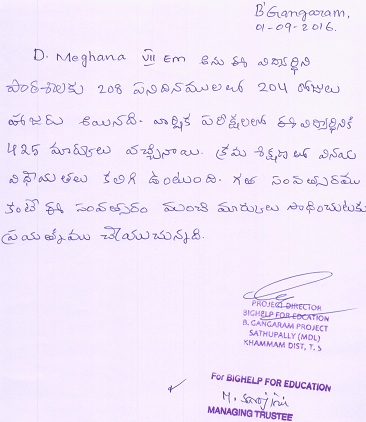 B'Gangaram,
01-09-2016.
D. Meghana VII Em అను ఈ విద్యార్థిని
పాఠశాలకు 208 పనిదినములలో 204 రోజులు
హాజరు అయినది. వార్షిక పరీక్షలలో ఈ విద్యార్థినికి
425 మార్కులు వచ్చినాయి. క్రమ శిక్షణలో వినయ
విధేయతలు కలిగి ఉంటుంది. గత సంవత్సరము
కంటే ఈ సంవత్సరం మంచి మార్కులు సాధించుటకు
ప్రయత్నము చేయుచున్నది.
PROJECT DIRECTOR
BIGHELP FOR EDCATION
B. GANGARAM PROJECT
SATHUPALLY (MDL)
KHAMMAM DIST, T. S
For BIGHELP FOR EDUCATION
M. Sarojini
MANAGING TRUSTEE